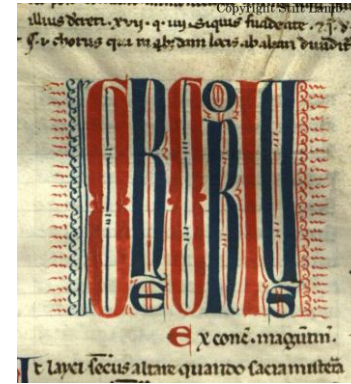 Copyright Stift Lamb
illius dc̄reti . xvii . q . iiii . Siquis suadente .
chorus qui in q̄bsdam locis ab altari diuidit̄
GREGORIUS
Ex conc̄ . magūtin̄ .
Ut layci secus altare quando sacra misteria